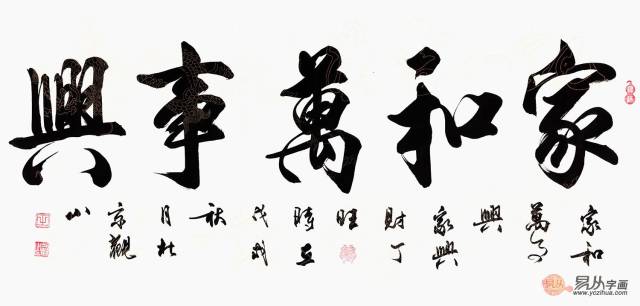 家和萬事興
家和
萬事
興
家興
財丁
旺
時在
戊戌
秋
月於
京觀
易从
易从字画
www.yczihua.com